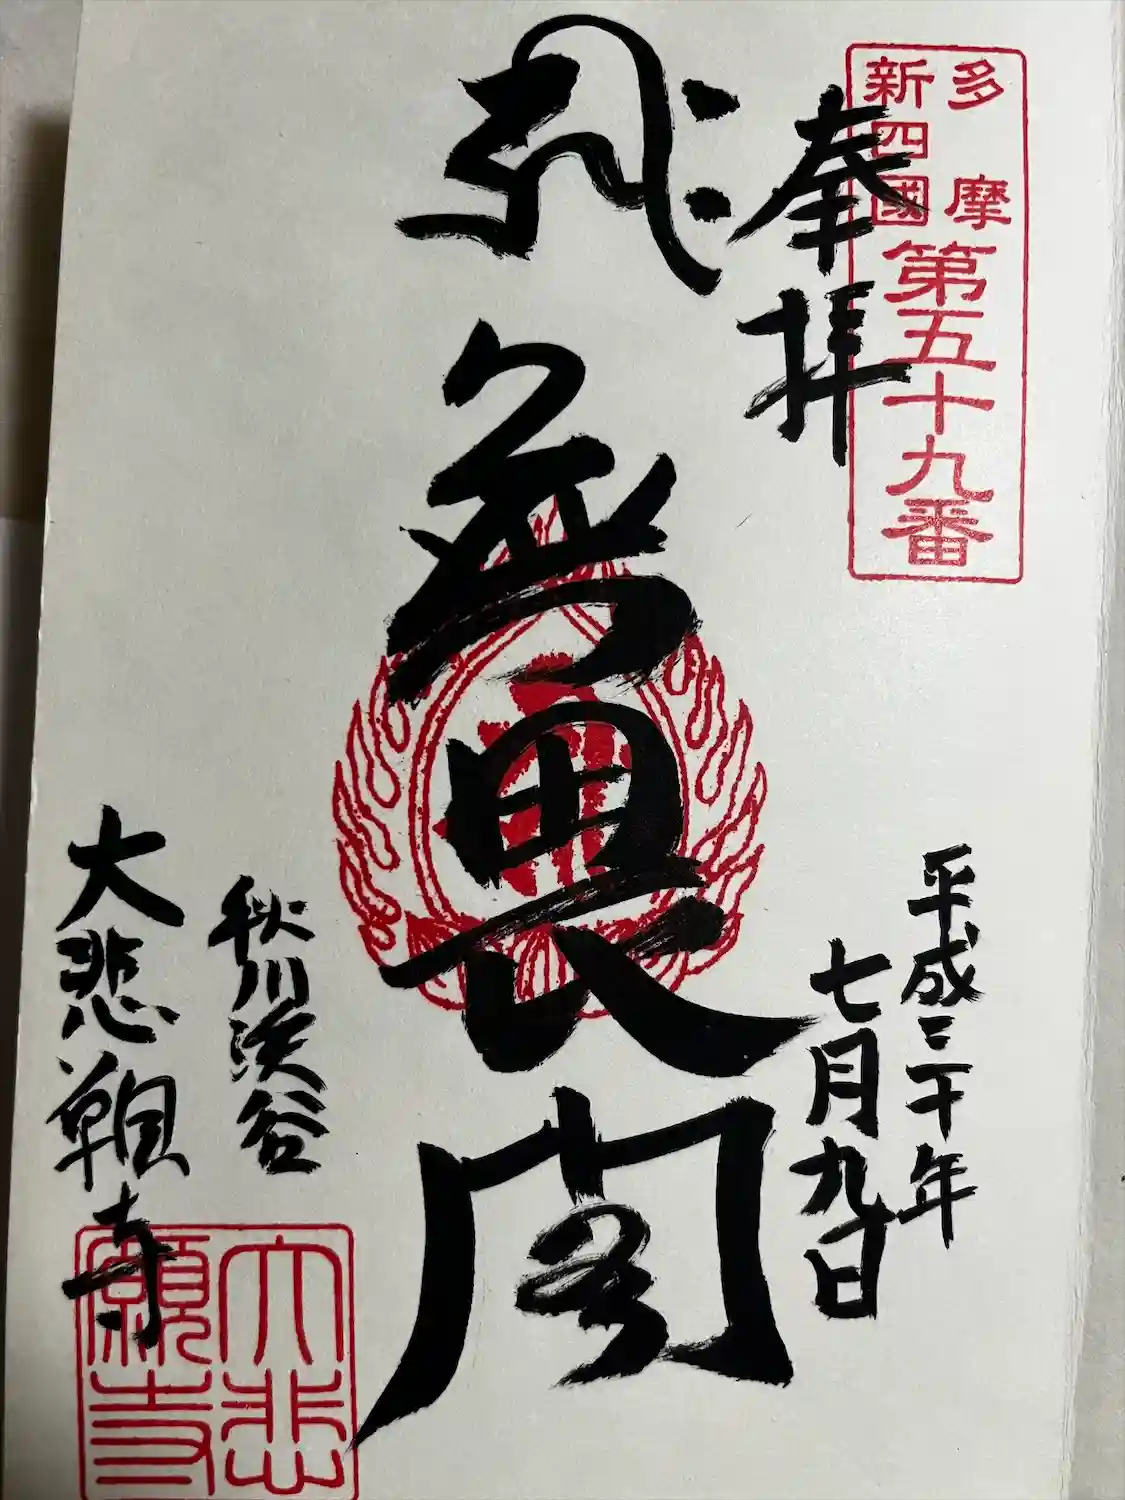 多摩
新四國
第五十九番
奉拝
平成三十年
七月九日
無畏閣
秋川渓谷
大悲願寺
大悲
願寺